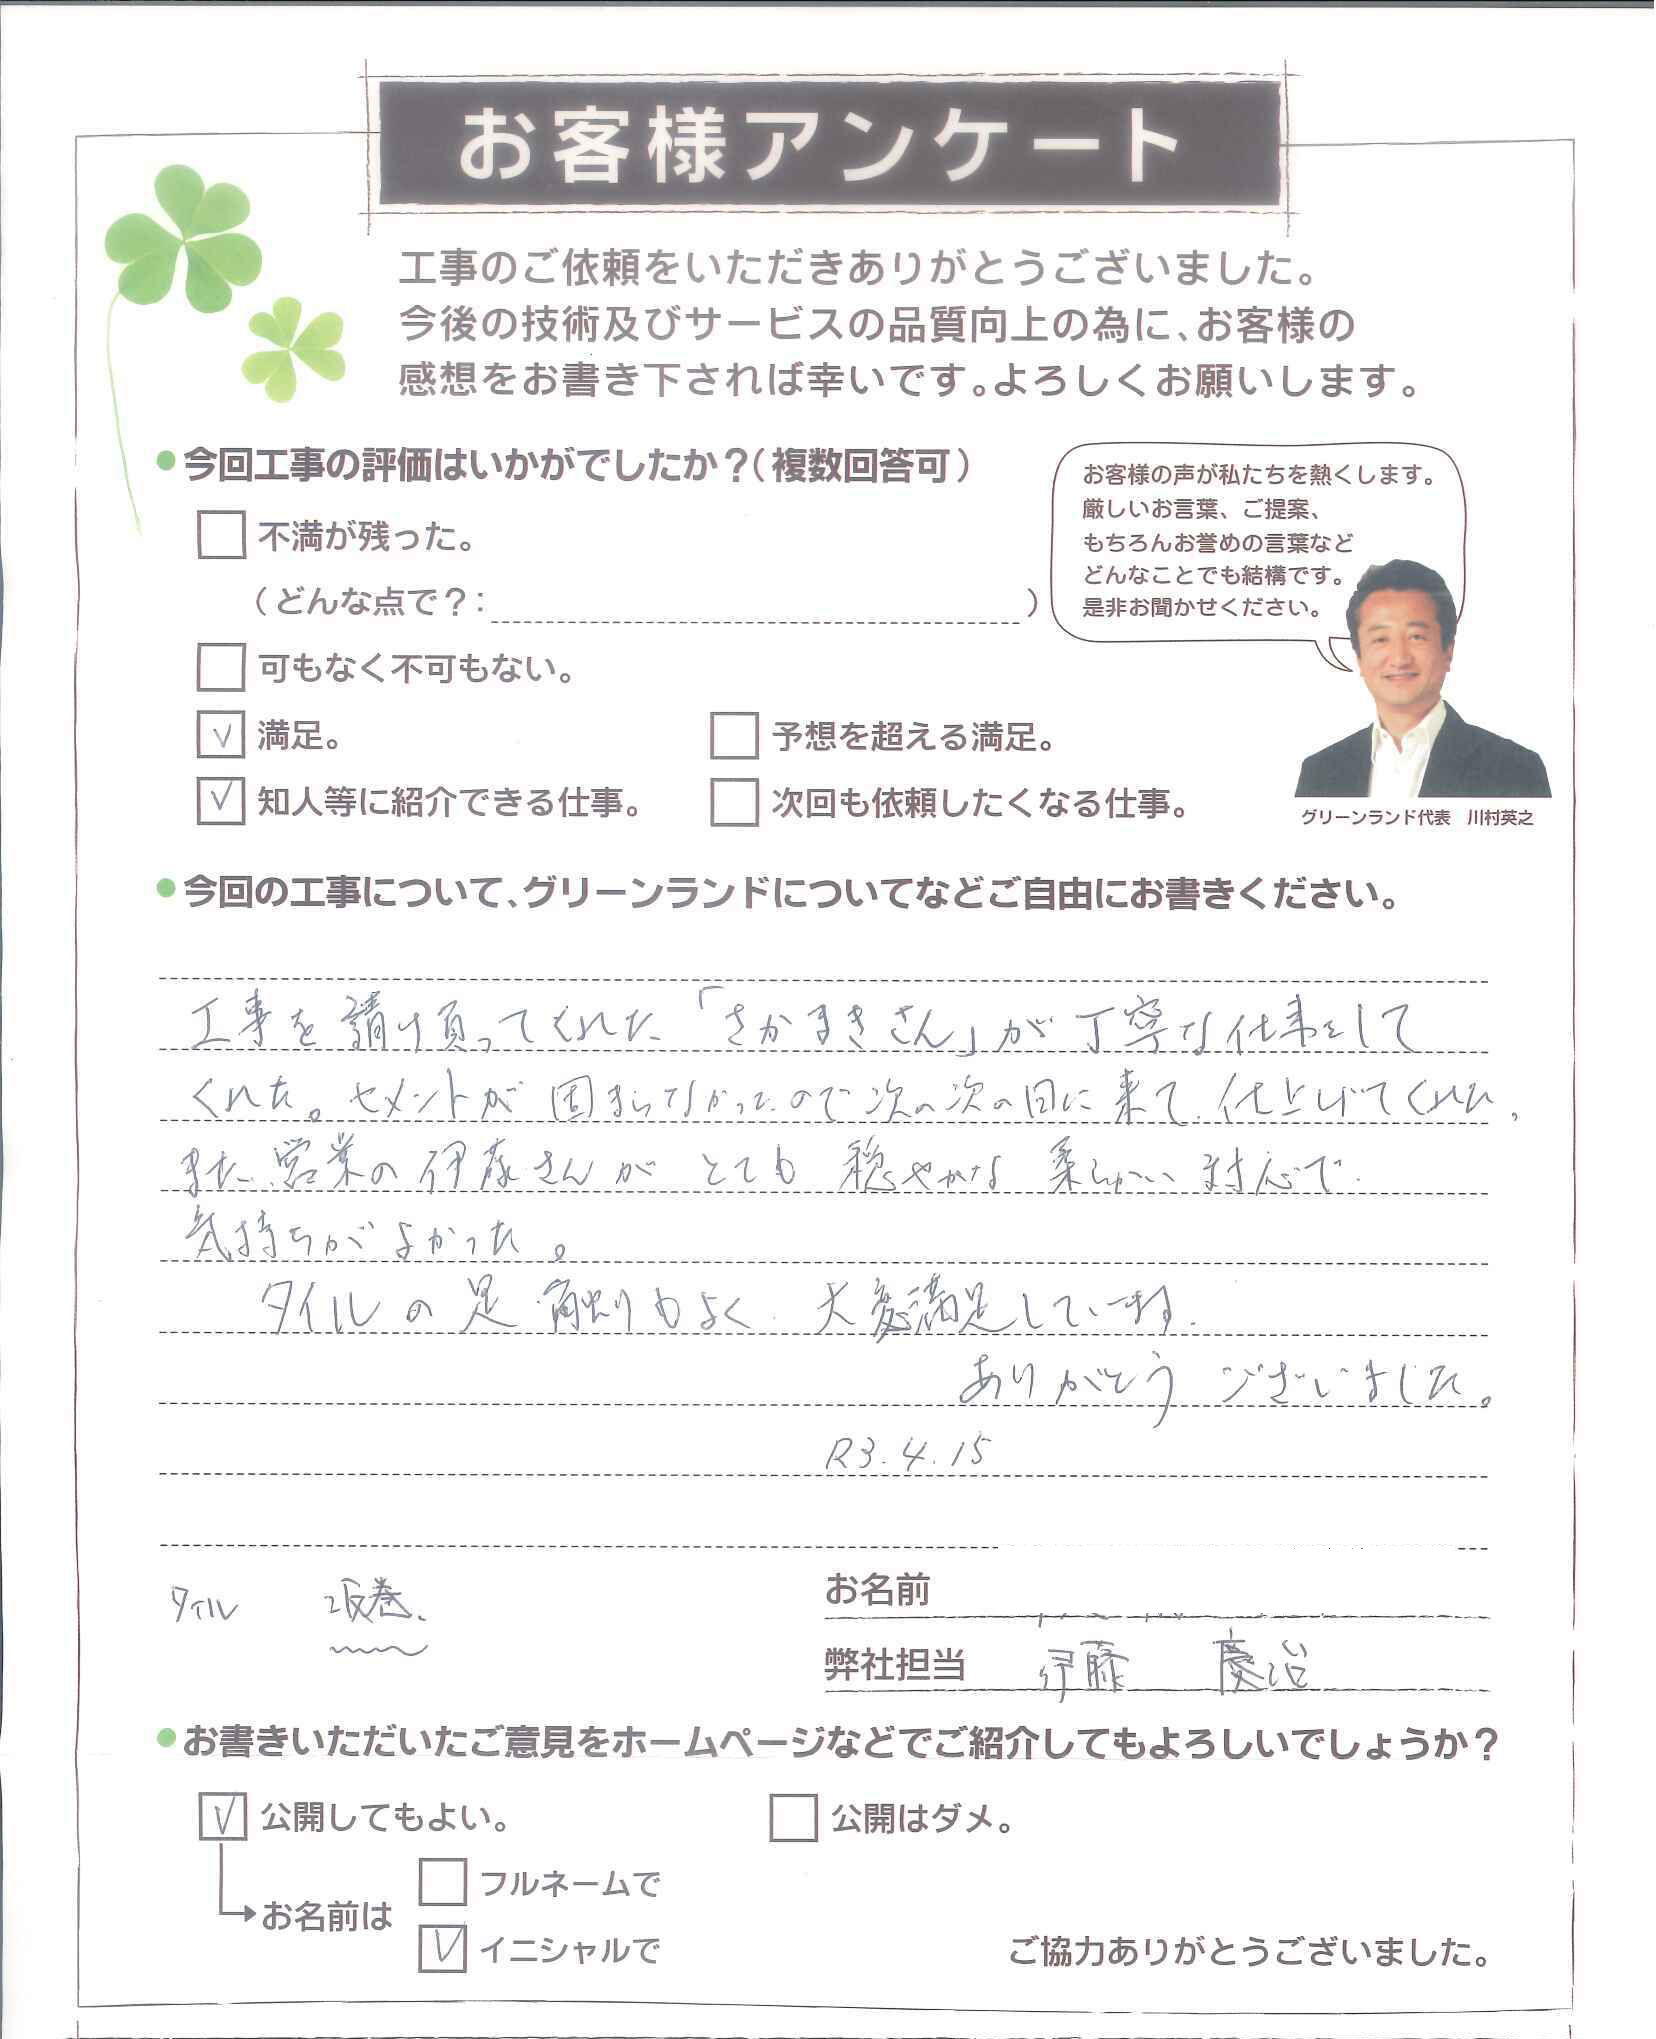 お客様アンケート
工事のご依頼をいただきありがとうございました。
今後の技術及びサービスの品質向上の為に、お客様の
感想をお書き下されば幸いです。よろしくお願いします。
●今回工事の評価はいかがでしたか？（複数回答可）
不満が残った。
（どんな点で？：　）
可もなく不可もない。
満足。
予想を超える満足。
知人等に紹介できる仕事。
次回も依頼したくなる仕事。
お客様の声が私たちを熱くします。
厳しいお言葉、ご提案、
もちろんお誉めの言葉など
どんなことでも結構です。
是非お聞かせください。
グリーンランド代表　川村英之
●今回の工事について、グリーンランドについてなどご自由にお書きください。
工事を請け負ってくれた「さかまきさん」が丁寧な仕事をして
くれた。セメントが固まらなかったので次の次の日に来て、仕上げてくれた。
また、営業の伊藤さんがとても穏やかな柔らかい対応で、
気持ちがよかった。
タイルの足触りもよく、大変満足しています。
ありがとうございました。
R3.4.15
タイル　坂巻、
お名前
弊社担当　伊藤　慶治
●お書きいただいたご意見をホームページなどでご紹介してもよろしいでしょうか？
公開してもよい。
公開はダメ。
お名前は
フルネームで
イニシャルで
ご協力ありがとうございました。